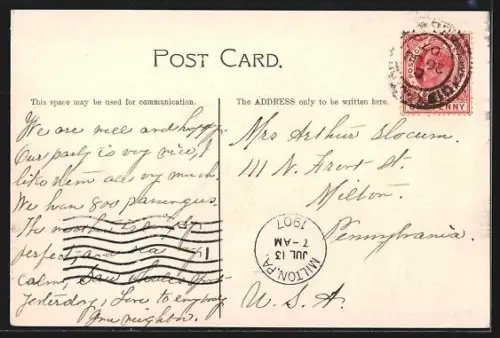 POST CARD.
This space may be used for communication.
The ADDRESS only to be written here.
We are well and happy.
Our party is very nice, I
like them all very much.
We have 800 passengers.
The
perfect, and sea
calm, Saw
yesterday, Love to
Your neighbor.
Mrs Arthur Slocum.
111 N. Front St.
Milton.
Pennsylvania.
U. S. A.
MILTON, PA.
JUL 13
7-AM
1907
PENNY